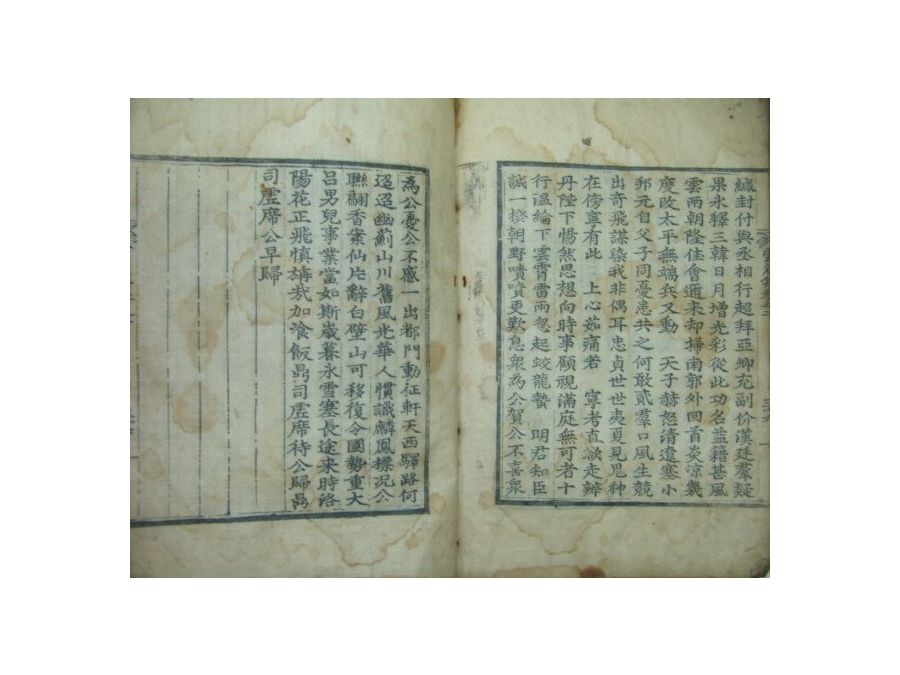 緘封付與丞相行超拜亞卿充副价漢廷羣疑
果氷釋三韓日月增光彩從此功名益籍甚風
雲兩朝隆佳會邇来却掃南郭外回首炎凉幾
度改太平無端兵又動 天子赫怒請遣塞小
邦元自父子同憂患共之何敢貳羣口風生競
出奇飛謀染我非偶耳忠貞世世夷夏見鬼神
在傍寧有此 上心茹痛者 寧考直欲走辨
丹陛下惕然思想向時事顧視滿庭無可者十
行溫綸下雲霄雷雨忽起蛟龍蟄 明君知臣
誠一櫟朝野嘖嘖更歎息衆為公賀公不喜衆
為公憂公不慼一出都門動征軒天西驛路何
迢迢幽薊山川舊風光華人慣識麟鳳標況公
聯翩香案仙片辭白璧山可移復令國勢重大
呂男兒事業當如斯歲暮氷雪塞長途来時洛
陽花正飛慎旃我加飡飯咼司虗席待公歸咼
司虗席公早歸